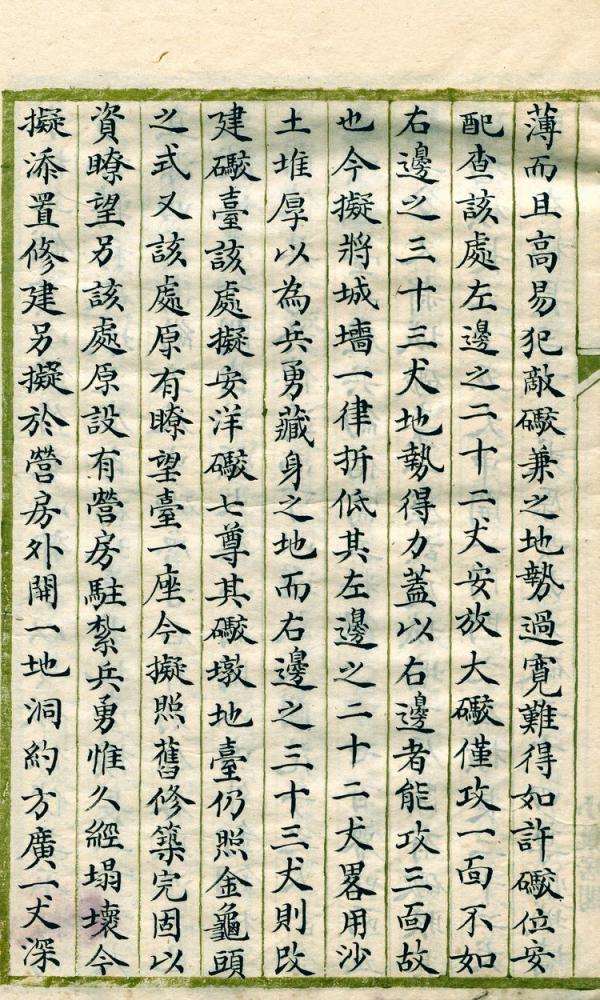 薄而且高易犯敵礮兼之地勢過寛難得如許礮位安
配查該處左邊之二十二丈安放大礮僅攻一面不如
右邊之三十三丈地勢得力蓋以右邊者能攻三面故
也今擬將城墻一律折低其左邊之二十二丈畧用沙
土堆厚以為兵勇藏身之地而右邊之三十三丈則改
建礮臺該處擬安洋礮七尊其礮墩地臺仍照金龜頭
之式又該處原有瞭望臺一座今擬照舊修築完固以
資瞭望另該處原設有營房駐紮兵勇惟久經塌壞今
擬添置修建另擬於營房外開一地洞約方廣一丈深